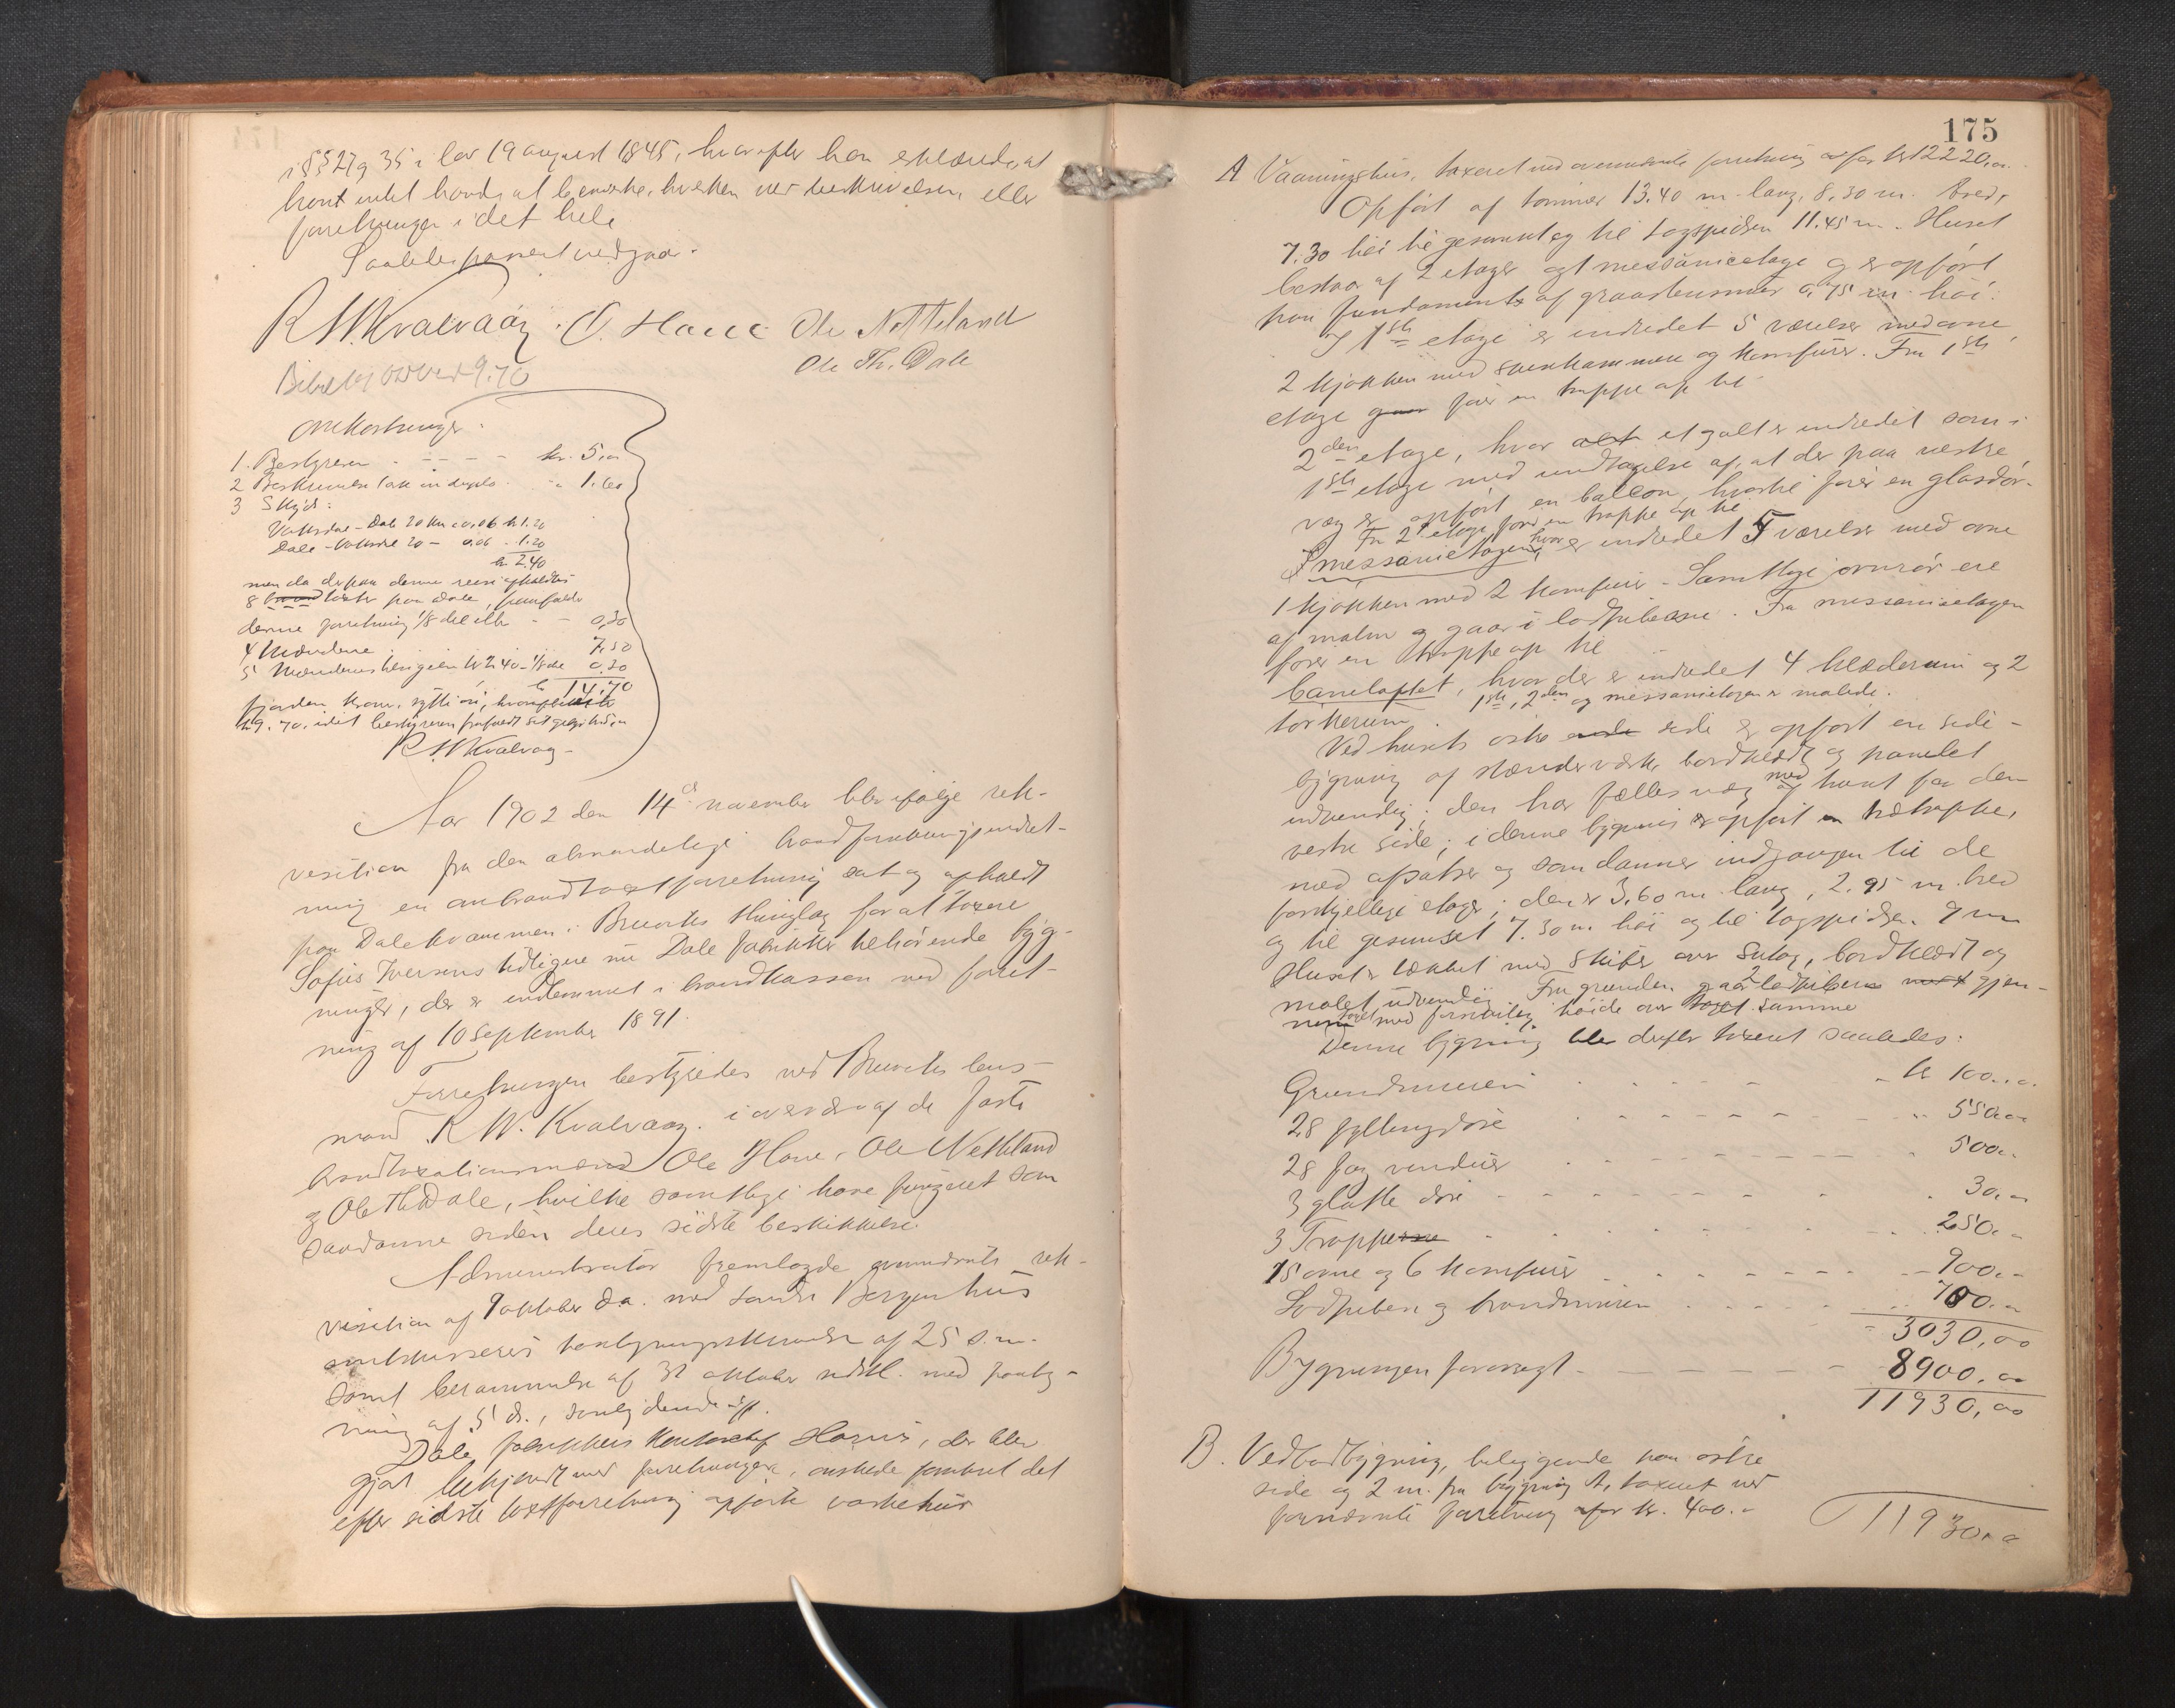 i §§ 27 og 35 i lov 19 august 1845, hvorefter han erklærede, at
han intet havde at bemærke, hverken ved beskrivelsen eller
forretningen i det hele
Saaledes passert vedgaar.
R W Kvalvaag. O. Hove Ole Netteland
Ole Th. Dale
9.70
Omkostninger.
1. Bestyreren - - - - kr. 5,00
2 Beskrivelse " 1.60
3 Skyds:
Vaksdal - Dale 20 km a 0,06 kr 1.20
Dale - Vaksdal 20 - 0.06 . 1.20
kr 2.40
men da der paa denne reise afholdtes
8 takster paa Dale, paafalder
denne forretning 1/8 del eller - - 0,30
4 Mændene 7.50
5 Mændenes kr 2.40 - 1/8 del 0.30
kr 14,70
fjorden kroner, sytti øre,
kr 9.70, idet bestyreren
R. W Kvalvaag -
Aar 1902 den 14de november blev ifølge rek-
visition fra den almindelige brandforsikringsindret-
ning en ombrandtaxtforretning sat og afholdt
paa Dalekvammen i Bruviks thinglag for at taxere
Sofus Iversens tidligere nu Dale fabrikker tilhørende byg-
ninger, der er indlemmet i brandkassen ved forret-
ning af 10 September 1891.
Forretningen bestyredes ved Bruviks lens-
mand R. W. Kvalvaag i overvær af de faste
brandtaxationsmænd Ole Hove, Ole Netteland
og Ole Th Dale, hvilke samtlige have fungeret som
saadanne siden deres sidste beskikkelse.
Administrator fremlagde omvendte rek-
visition af 9 oktober d.a. med søndre Bergenhus
amtskasserers af 25 s.m.
samt berammelse af 31 oktober næstl. med paateg-
ning af 5 ds.,
Dale fabrikkers Kontorchef , der blev
gjort bekjendt med forretningen, ønskede forøvrigt det
efter sidste taxtforretning opførte vaskehus
175
A Vaaningshus, taxeret ved ovennævnte forretning for kr 12220,00.
Opført af tømmer 13.40 m. lang, 8.30 m. bred,
7.30 høi til gesimset og til tagspidsen 11.45 m. Huset
bestaar af 2 etager og 1 messanietage og er opført
paa fundament af graastensmur 0,75 m. høi.
I 1ste etage er indredet 5 værelser med ovne,
2 kjøkken med spiskammere og komfurer. Fra 1ste
etage gaar fører en trappe op til
2den etage, hvor alt et galt er indredet som i
1ste etage med undtagelse af, at der paa vestre
væg er opført en balcon, hvortil fører en glasdør.
Fra 2d etage fører en trappe op til
I messanietagen, hvor er indredet 5 værelser med ovne
1 kjøkken med 2 komfurer - Samtlige ovnrør ere
af malm og gaar i lodpiberne. Fra messanietagen
fører en trappe op til
bareloftet, hvor der er indredet 4 klæderum og 2
tørkerum. 1ste, 2den og messanietagen er malede.
Ved husets østre ende side er opført en side-
bygning af stænderværk, bordklædt og panelet
indvendig; den har fælles væg med huset paa den
vestre side; i denne bygning er opført en trætrappe,
med afsatser og som danner indgangen til de
forskjellige etager; den er 3,60 m. lang, 2.95 m. bred
og til gesimset 7.30 m. høi og til tagspidsen 9 m
Huset er tækket med skifer over sutag, bordklædt og
malet udvendig. Fra grunden gaar 2 lodpiber gjen-
nem taget med forsvarlig høide over taget samme
Denne bygning blev derfor taxeret saaledes:
Grundmuren - kr 100,00.
28 fyllingsdøre " 550,00
28 fag vinduer 500,00
3 glatte døre 30,00
3 Trapperne 250,00
15 ovne og 6 komfurer 900,00
Lodpiben og brandmuren 700,00
3030,00
Bygningen forøvrigt - 8900,00
11930,00
B. Vedbodbygning, beliggende paa østre
side og 2 m. fra bygning A, taxeret ved
fornævnte forretning for kr. 400.00
11930,00